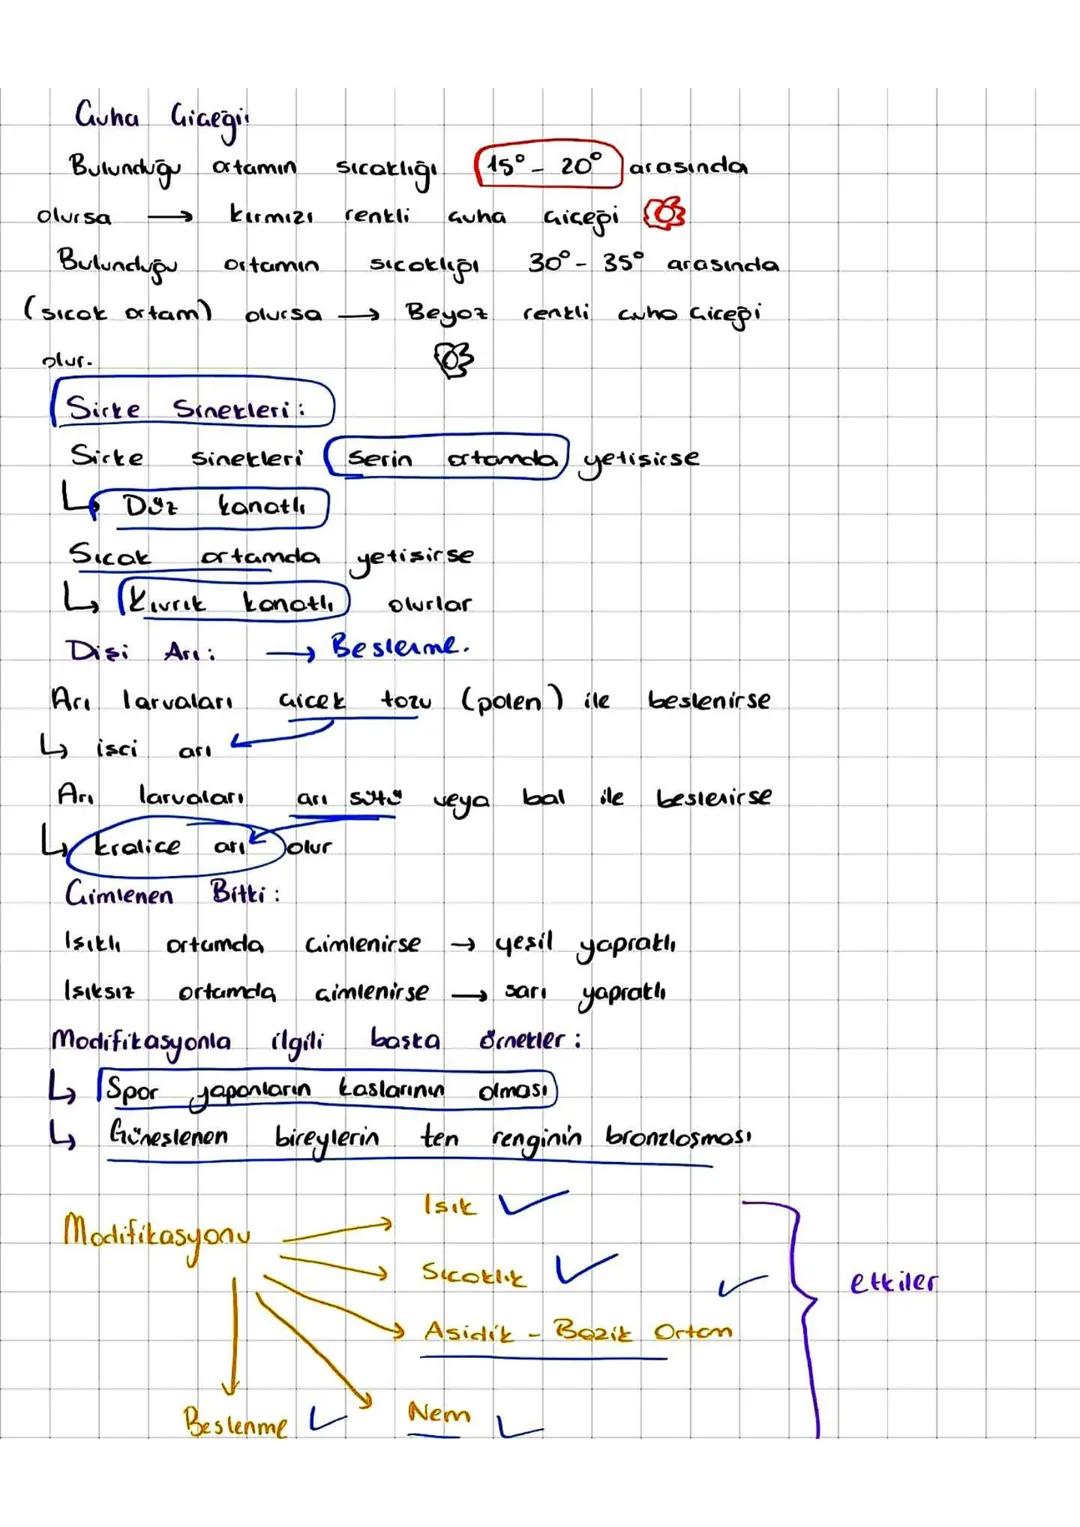 Çuha Çiçeği:
Bulunduğu ortamın sıcaklığı 15° - 20° arasında
olursa → kırmızı renkli çuha çiçeği
Bulunduğu ortamın sıcaklığı 30° - 35° arasında
(sıcak ortam) olursa → Beyaz renkli çuha çiçeği
olur.
Sirke Sinekleri:
Sirke sinekleri serin ortamda yetişirse
↳ Düz kanatlı
Sıcak ortamda yetişirse
↳ Kıvrık kanatlı olurlar
Dişi Arı: → Beslenme.
Arı larvaları çiçek tozu (polen) ile beslenirse
↳ işçi arı
Arı larvaları arı sütü veya bal ile beslenirse
↳ kraliçe arı olur
Çimlenen Bitki:
Işıklı ortamda çimlenirse → yeşil yapraklı
Işıksız ortamda çimlenirse → sarı yapraklı
Modifikasyonla ilgili başka örnekler:
↳ Spor yapanların kaslarının olması
↳ Güneşlenen bireylerin ten renginin bronzlaşması
Işık ✓
Modifikasyonu
Sıcaklık ✓
etkiler
Asidik - Bazik Ortam ✓
Beslenme ✓ Nem ✓